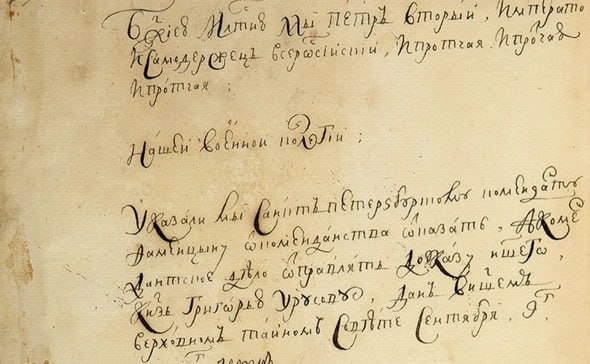 Бжиею Млтию Мы Петръ вторыи, Императо
и Самодержецъ всеросиискии, и протчая и протчая
и протчая:
Нашеи военнои колегии:
Указали мы Санктъ петерзбургскому коменданту
от комендантства отказать, а коме
дантское дело отправлять до указу
Кнзь Григорью Урусову, данъ в нашемъ
верховномъ таиномъ Совете Сентября, 9г